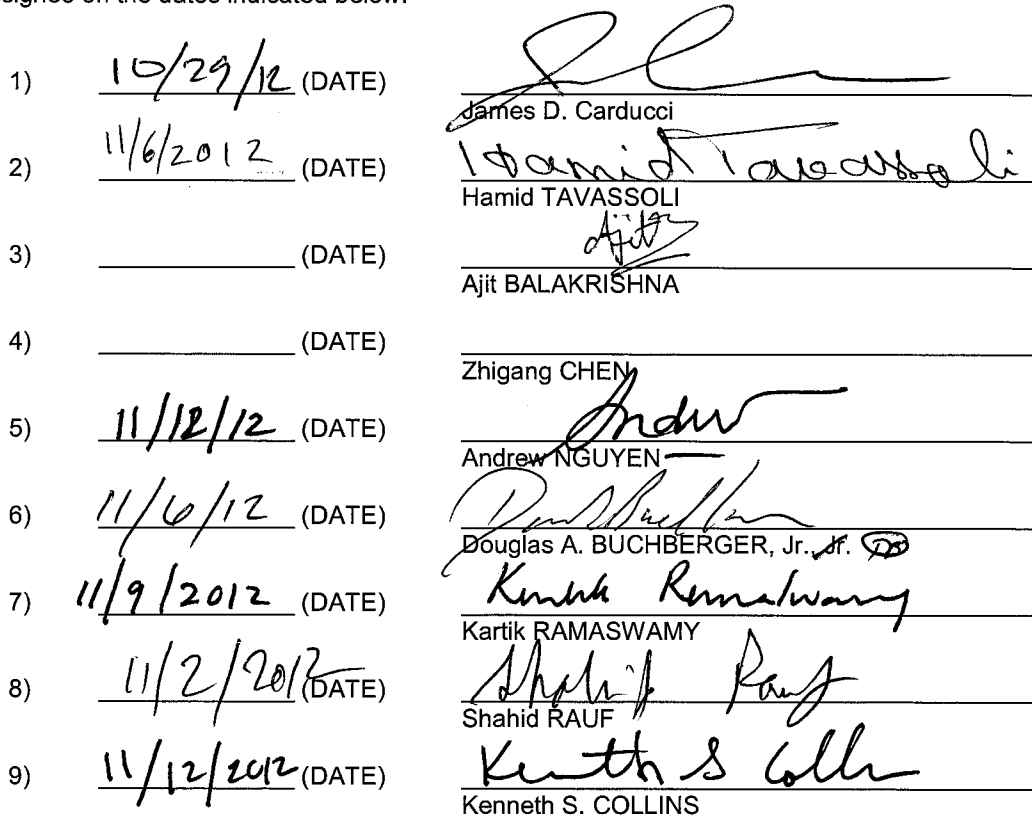 signed on the dates indicated below.
1) 10/29/12 (DATE)
James D. Carducci
2) 11/6/2012 (DATE) Hamid Tavassoli
Hamid TAVASSOLI
3) (DATE) Ajit
Ajit BALAKRISHNA
4) (DATE)
Zhigang CHEN
5) 11/12/12 (DATE) Andrew
Andrew NGUYEN
6) 11/6/12 (DATE)
Douglas A. BUCHBERGER, Jr., Jr. DB
7) 11/9/2012 (DATE) Kartik Ramaswamy
Kartik RAMASWAMY
8) 11/2/2012 (DATE) Shahid Rauf
Shahid RAUF
9) 11/12/2012 (DATE) Kenneth S Collins
Kenneth S. COLLINS